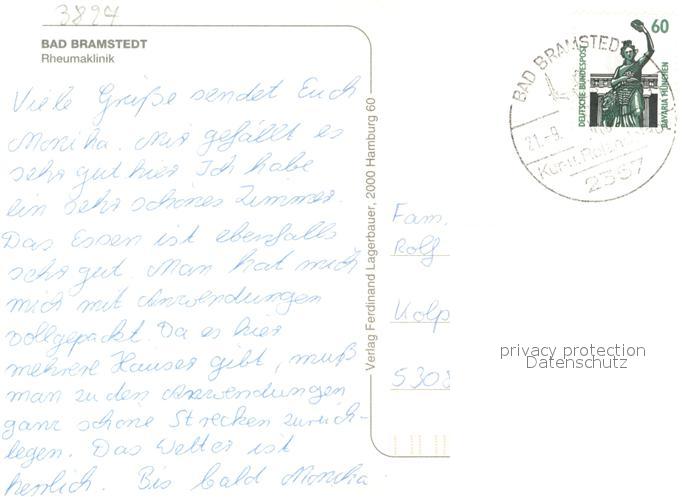 3894
BAD BRAMSTEDT
Rheumaklinik
Viele Grüße sendet Euch
Monika. Mir gefällt es
sehr gut hier Ich habe
ein sehr schönes Zimmer.
Das Essen ist ebenfalls
sehr gut. Man hat mich
mich mit Anwendungen
vollgepackt. Da es hier
mehrere Häuser gibt, muß
man zu den Anwendungen
ganz schöne Strecken zurück-
legen. Das Wetter ist
herrlich. Bis bald Monika.
Verlag Ferdinand Lagerbauer, 2000 Hamburg 60
60
DEUTSCHE BUNDESPOST
BAVARIA MÜNCHEN
BAD BRAMSTEDT
21.-9.
Kur-u.
2357
Fam.
Rolf
Kolp
5308
privacy protection
Datenschutz